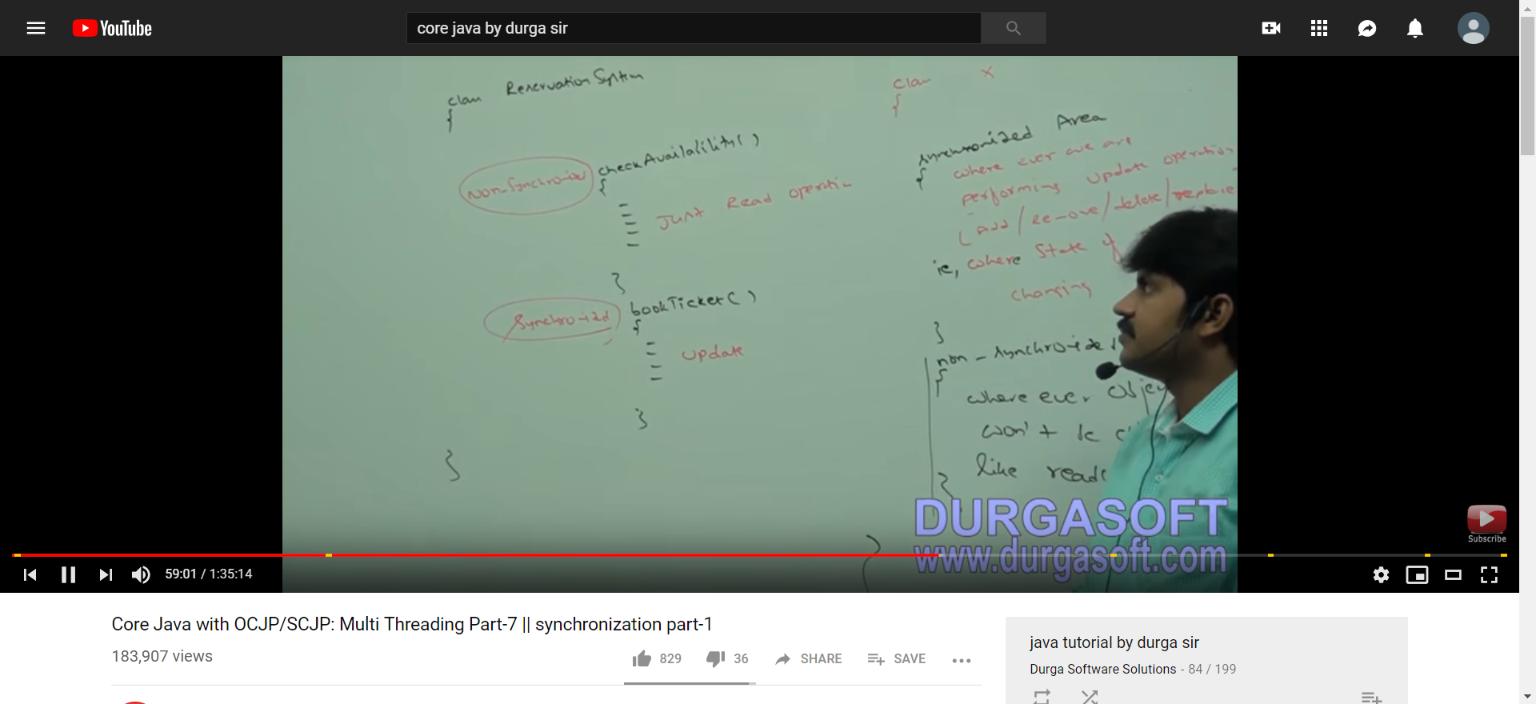 YouTube
core java by durga sir
class ReservationSystem
{
Non-Synchronized checkAvailability()
{
Just Read operation
}
Synchronized bookTicket()
{
update
}
}
class X
{
synchronized Area
{
where ever we are
performing update operation
(add/remove/delete/replace
ie, where state of
changing
}
non-synchronized
{
where ever obje
won't be c
like read
}
}
DURGASOFT
www.durgasoft.com
Subscribe
59:01 / 1:35:14
Core Java with OCJP/SCJP: Multi Threading Part-7 || synchronization part-1
183,907 views
829 36 SHARE SAVE
java tutorial by durga sir
Durga Software Solutions - 84 / 199